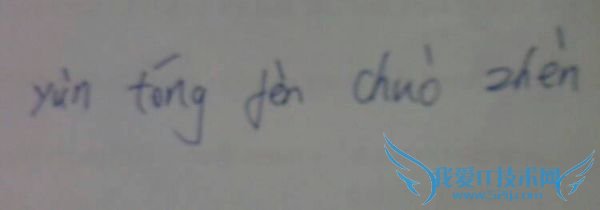 yùn tōng fèn chuò zhèn
我爱IT技术网